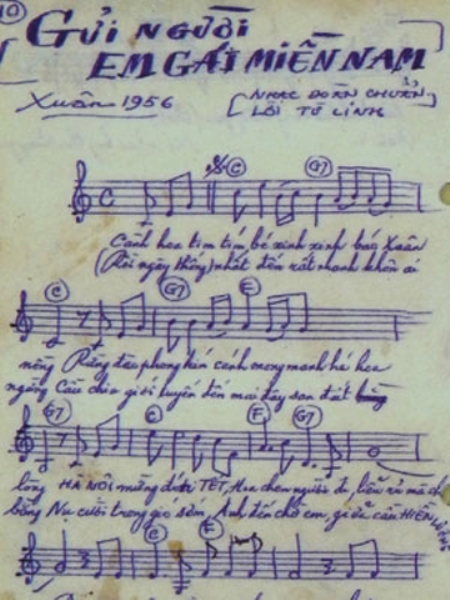 10
GỬI NGƯỜI
EM GÁI MIỀN NAM
Xuân 1956
[NHẠC ĐOÀN CHUẨN
LỜI TỪ LINH]
C G7
C
Cành hoa tim tím bé xinh xinh báo Xuân
(Rồi ngày thống) nhất đến rất nhanh không ai
C G7 C
nồng Rừng đào phong kín cánh mong manh hé hoa
ngăng Cầu chia giới tuyến đến mai đây san đất
G7 C F G7
lòng HÀ NỘI mừng đón TẾT, Hoa chen người đi, liễu rủ mà
bằng Nụ cười trong gió sớm, Anh đến chờ em, giữa cầu HIỀN LƯƠNG
C